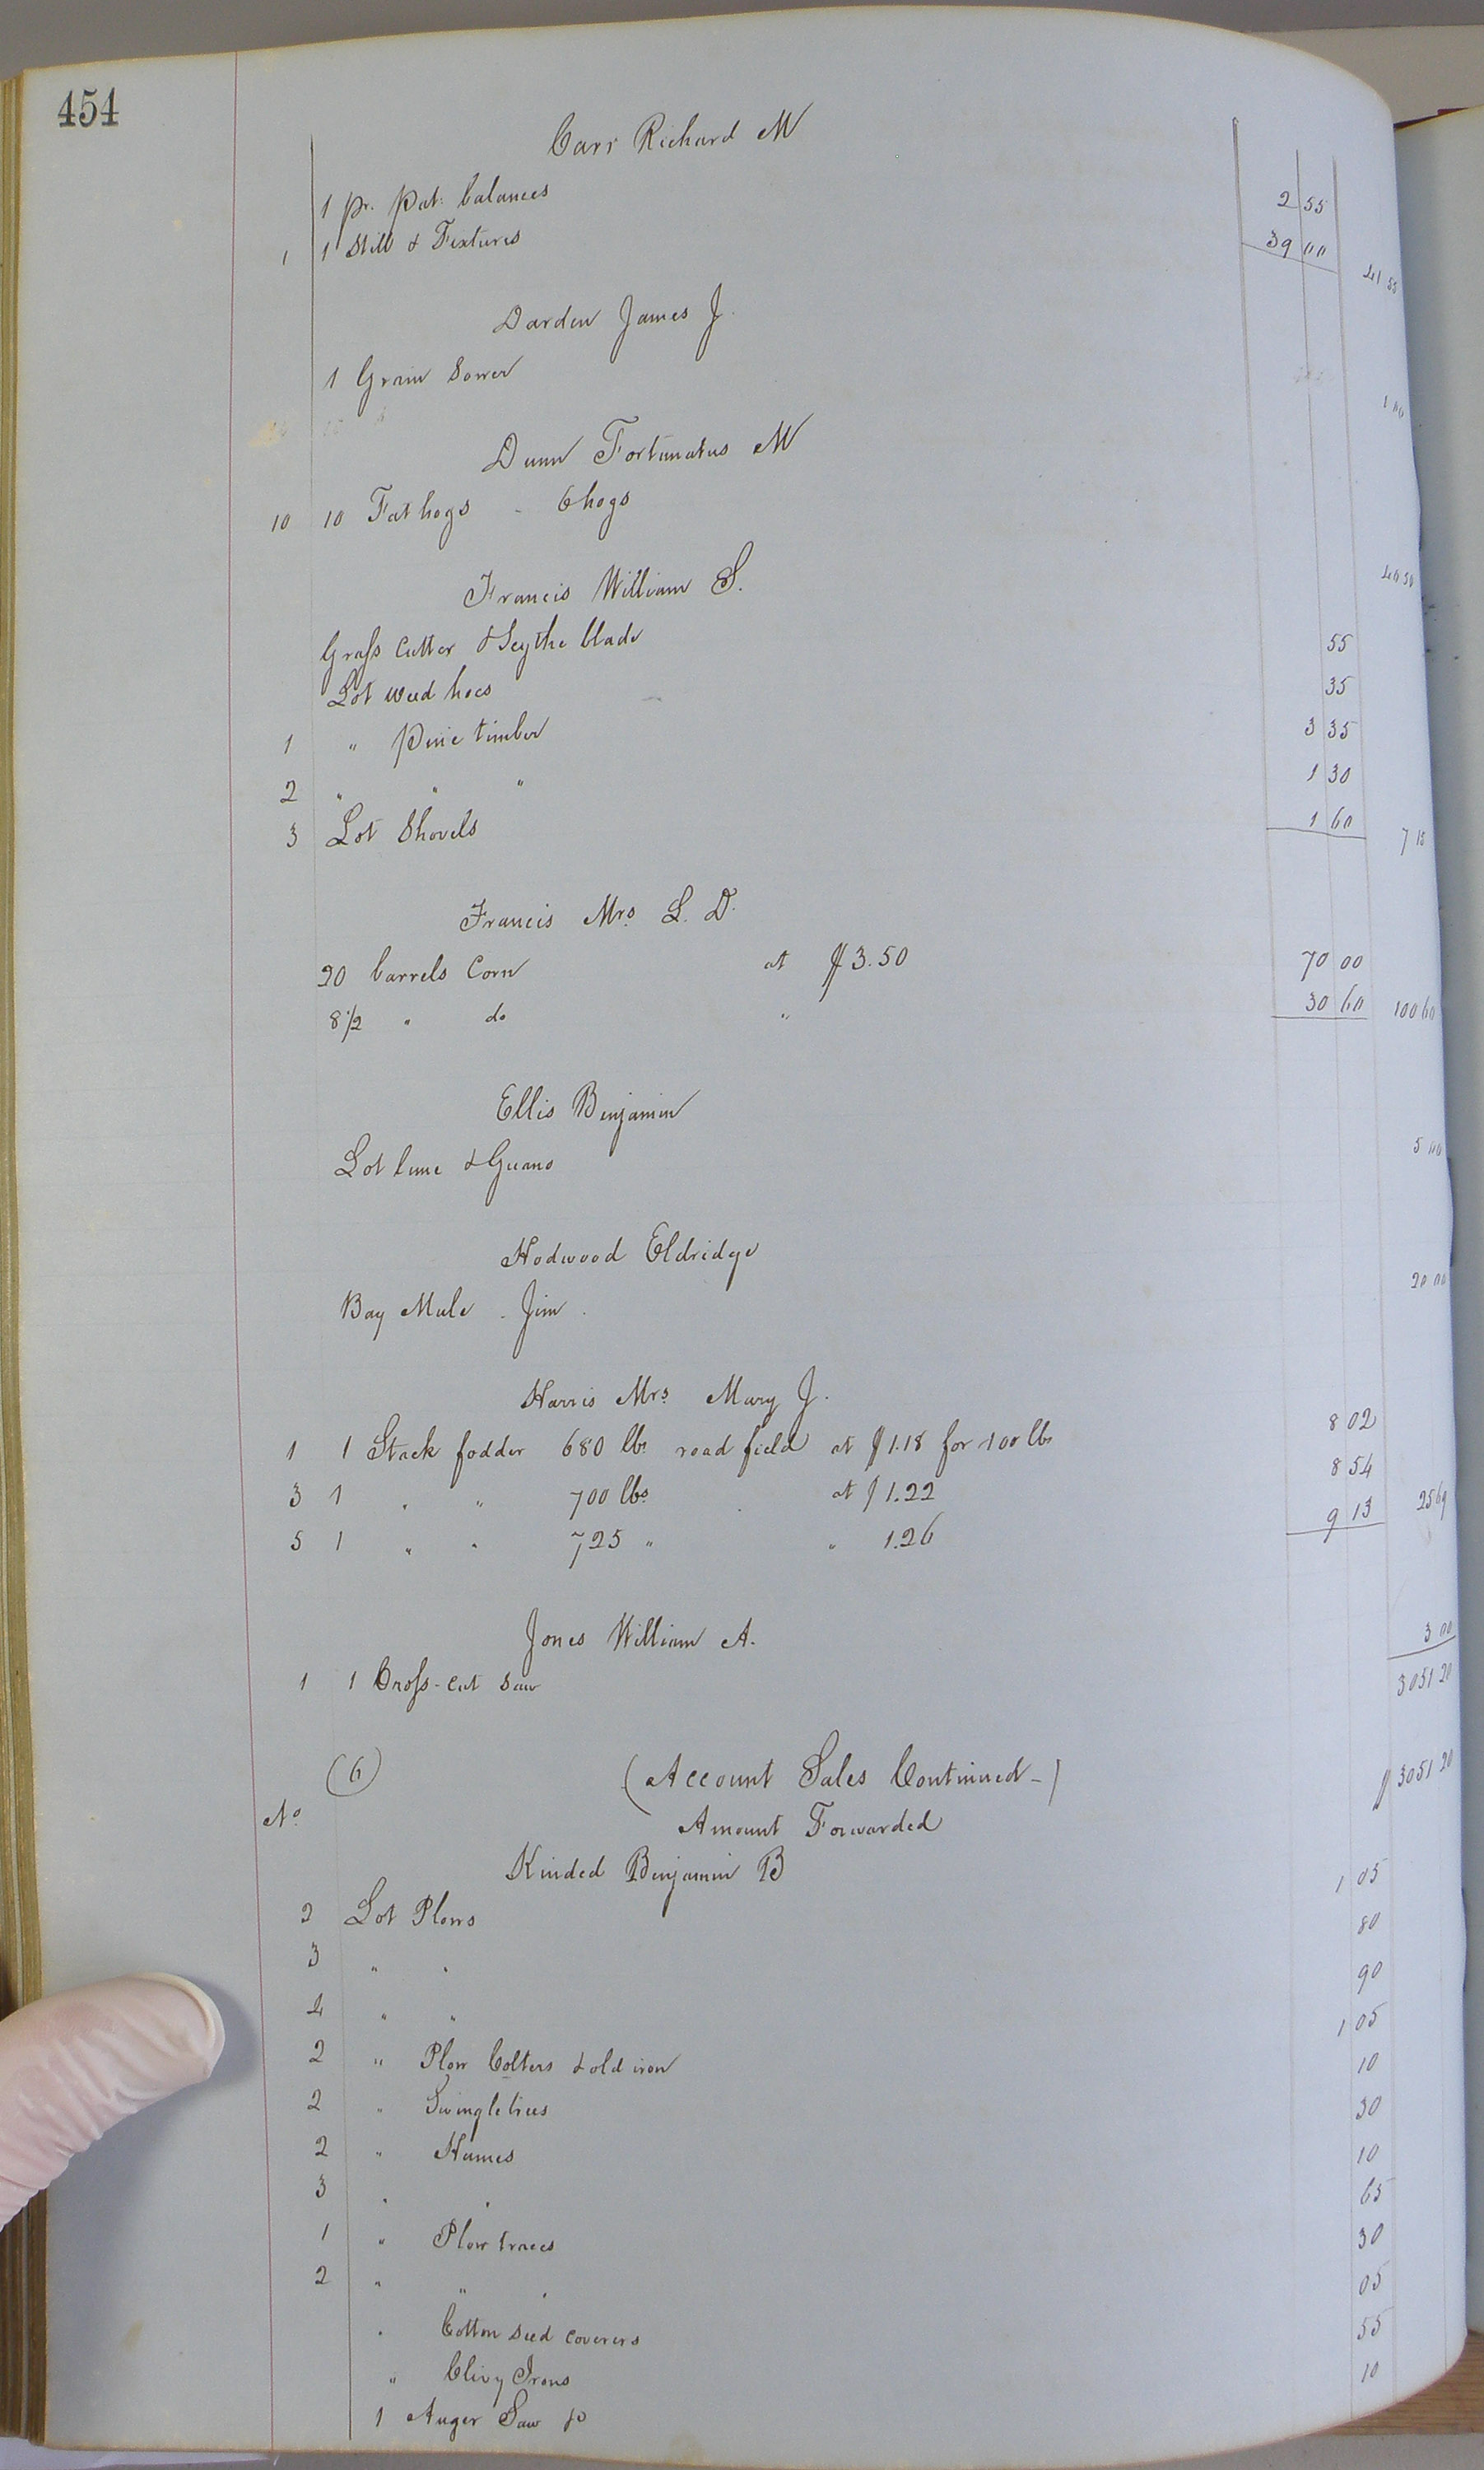 454
Carr Richard M
1 pr. Pat: balances 2 55
1 1 Still & Fixtures 39 00 41 55
Darden James J.
1 Grain Sower 1 00
Dunn Fortunatus M
10 10 Fat hogs - 6 hogs 46 50
Francis William S.
Grass Cutter & Scythe blade 55
Lot weed hoes 35
1 " Pine timber 3 35
2 " " " 1 30
3 Lot Shovels 1 60 7 15
Francis Mrs. L. D.
20 barrels Corn at $3.50 70 00
8 1/2 " do " 30 60 100 60
Ellis Benjamin
Lot lime & Guano 5 00
Hodwood Eldridge
Bay Mule - Jim 20 00
Harris Mrs. Mary J.
1 1 Stack fodder 680 lbs road field at $1.18 for 100 lbs 8 02
3 1 " " 700 lbs " at $1.22 8 54
5 1 " " 725 " " 1.26 9 13 25 69
Jones William A.
1 1 Cross-cut saw 3 00
3051 20
(6) (Account Sales Continued-)
No. Amount Forwarded $3051 20
Kinded Benjamin B
2 Lot Plows 1 05
3 " " 80
4 " " 90
2 " Plow Colters & old iron 1 05
2 " Swingletrees 10
2 " Hames 30
3 " " 10
1 " Plow traces 65
2 " " " 30
" Cotton seed coverers 05
" Clivy Irons 55
1 Auger Saw 10